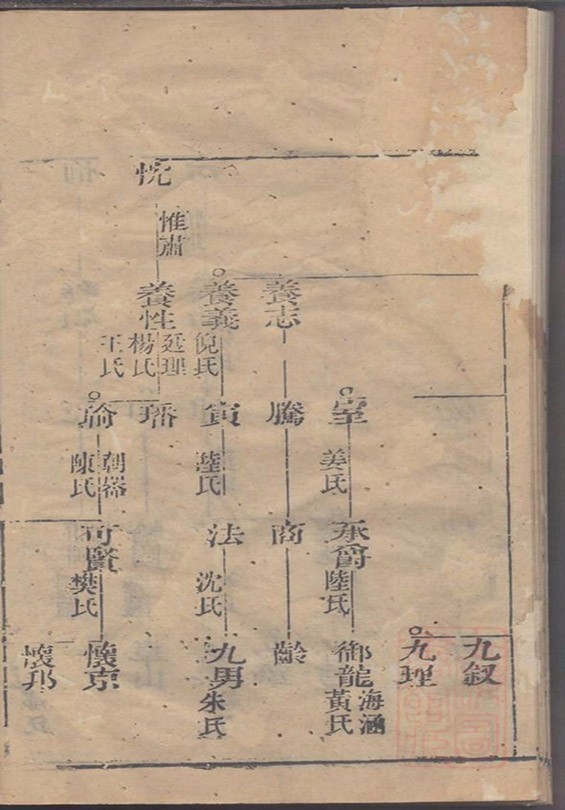 忱
惟肅
養志
養義
養性
倪氏
廷理
楊氏
王氏
室
騰
寅
璠
瑜
姜氏
陸氏
朝器
陳氏
承爵
商
法
可賢
陸氏
沈氏
樊氏
九叙
九理
御龍
齡
九男
懷京
懷邦
海涵
黃氏
朱氏